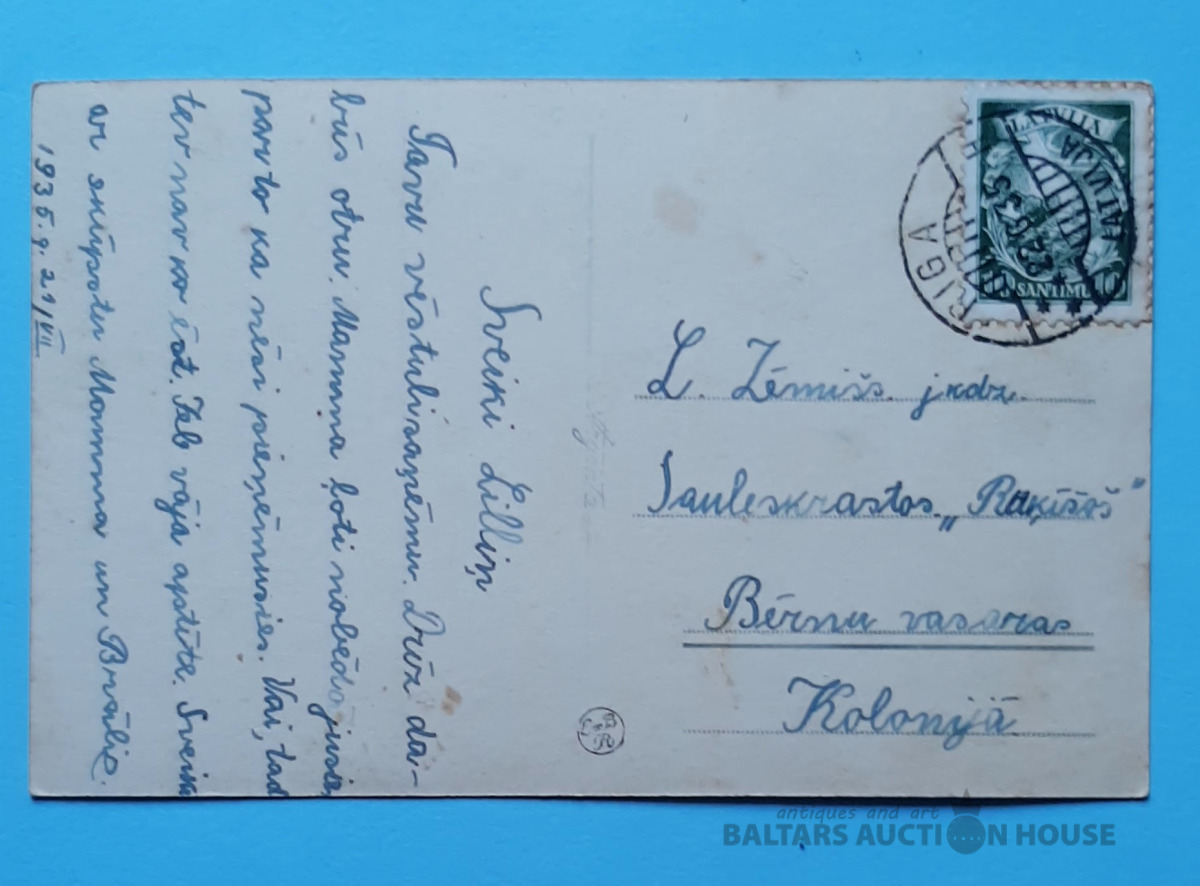 Sveiki Lilliņ
Tavu vēstuli saņēmu. Drīz da-
būs otru. Mamma ļoti nobēdājusies,
par to ka nēsi pieņēmusies. Vai, tad
tev nav ko ēst. Jeb vāja apetīte. Sveika
ar skūpstu Mamma un Brālis.
1935.g. 21/VII
L. Zēmišs. jkdz.
Sauleskrastos. „Raķīšos”
Bērnu vasaras
Kolonijā
RIGA
LATVIJA
LATVIJA
10 SANTIMU 10
antiques and art
BALTARS AUCTION HOUSE